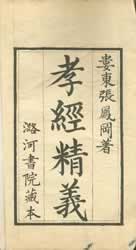 婁東張鳳岡著
孝經精義
潞河書院藏本